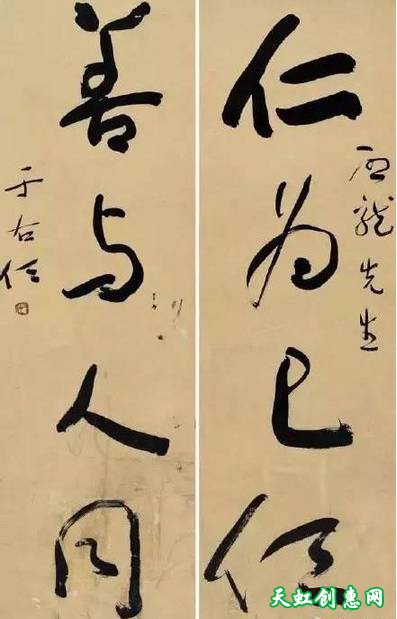 龍先生
仁为己任
善与人同
于右任
天虹创惠网